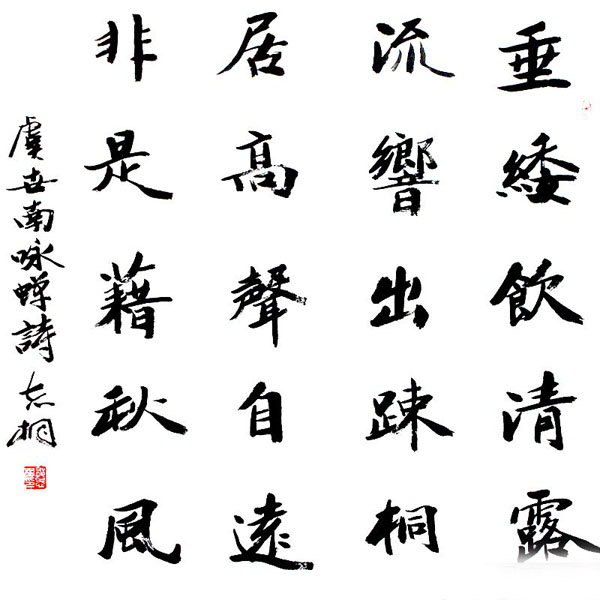 垂緌飲清露
流響出疎桐
居高聲自遠
非是藉秋風
虞世南咏蟬詩 志桐